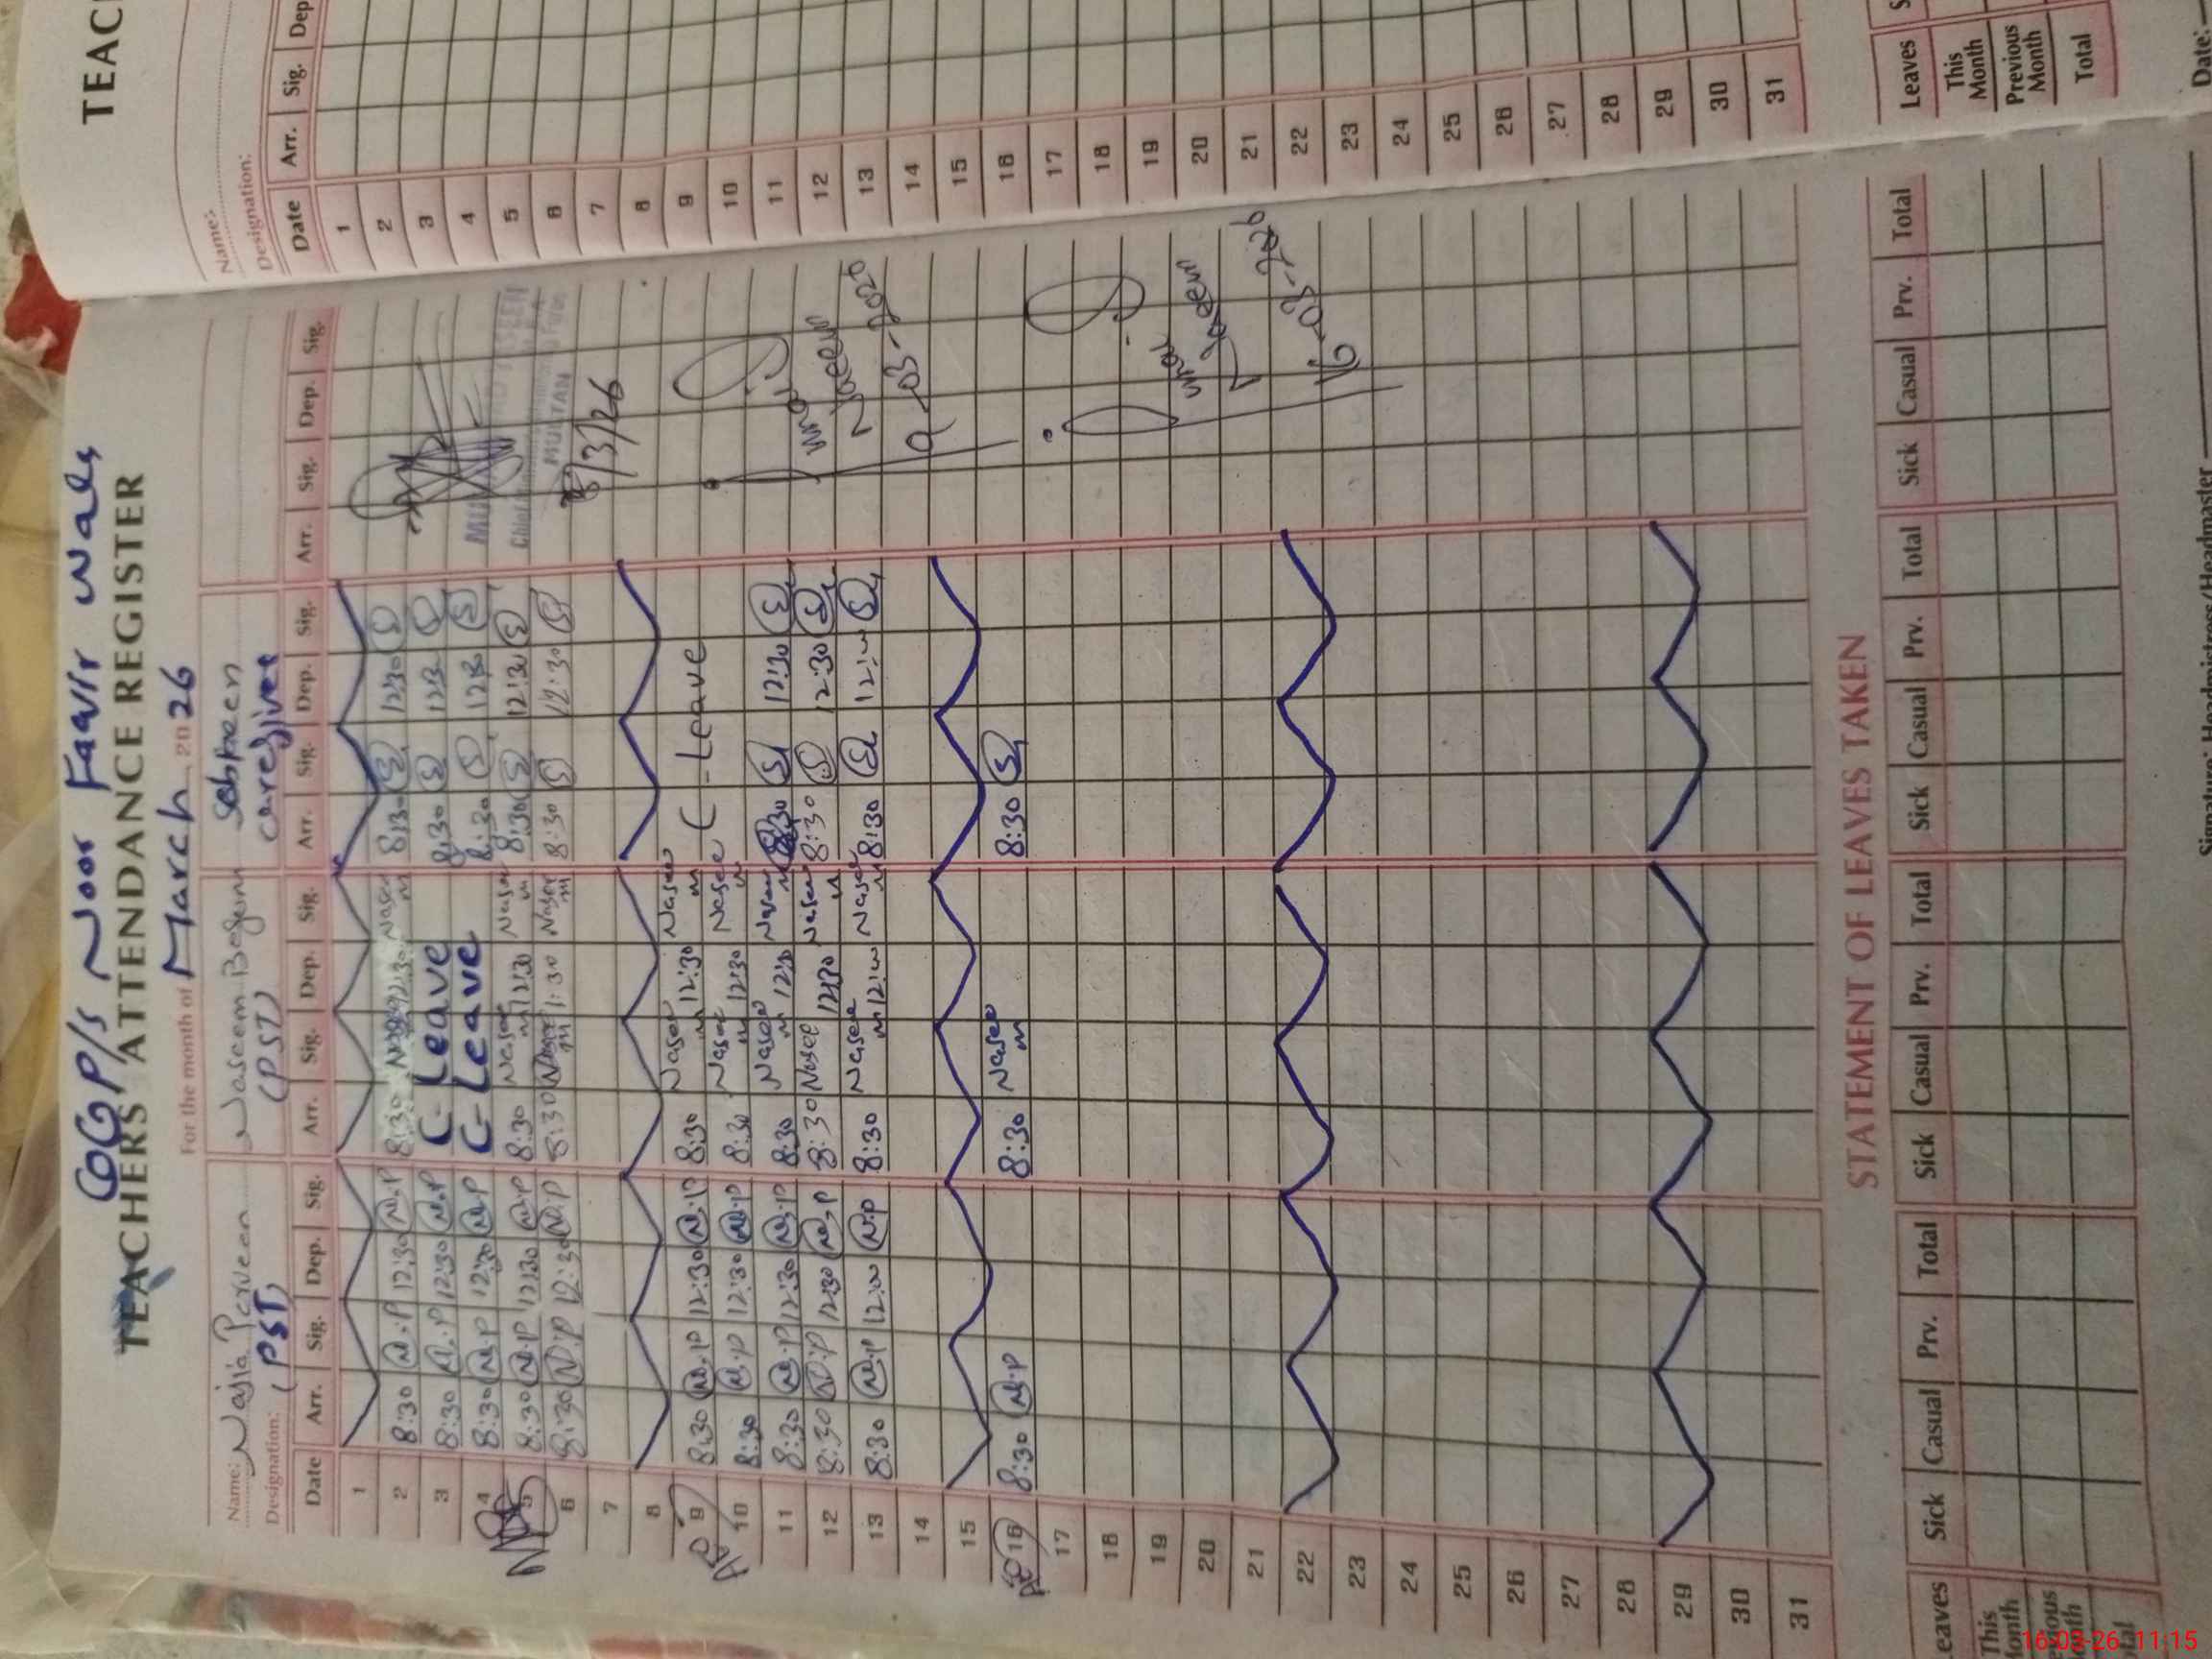 GGP/S Noor Faqir wala
TEACHERS ATTENDANCE REGISTER
For the month of March, 2026
Name: Najia Parveen Naseem Begum Sehreen
Designation: (PST) (PST) caregiver
Date Arr. Sig. Dep. Sig. Arr. Sig. Dep. Sig. Arr. Sig. Dep. Sig. Arr. Sig. Dep. Sig.
1
2 8:30 N.P 12:30 N.P 8:30 12:30 Nasee m 8:30 S 12:30 S
3 8:30 N.P 12:30 N.P C-Leave 8:30 S 12:30 S
4 8:30 N.P 12:30 N.P C-Leave 8:30 S 12:30 S
5 8:30 N.P 12:30 N.P 8:30 Nasee m 12:30 Nasee m 8:30 S 12:30 S
6 8:30 N.P 12:30 N.P 8:30 1:30 Nasee m 8:30 S 12:30 S
MULTAN
/3/26
7
8
9 8:30 N.P 12:30 N.P 8:30 Nasee m 12:30 Nasee m C-Leave
10 8:30 N.P 12:30 N.P 8:30 Nasee m 12:30 Nasee m
11 8:30 N.P 12:30 N.P 8:30 Nasee m 12:30 Nasee m 8:30 S 12:30 S
12 8:30 N.P 12:30 N.P 8:30 Nasee 12:30 Nasee m 8:30 S 12:30 S
13 8:30 N.P 12:00 N.P 8:30 Nasee m 12:00 Nasee m 8:30 S 12:00 S
Naeem
9-03-2026
14
15
16 8:30 N.P 8:30 Nasee m 8:30 S
17
18
19
20
Naeem
21
22
16-03-2026
23
24
25
26
27
28
29
30
31
STATEMENT OF LEAVES TAKEN
Leaves Sick Casual Prv. Total Sick Casual Prv. Total Sick Casual Prv. Total Sick Casual Prv. Total
This Month
Previous Month
Total
Signature: Headmistress/Headmaster
TEAC
Name:
Designation:
Date Arr. Sig. Dep
1
2
3
4
5
6
7
8
9
10
11
12
13
14
15
16
17
18
19
20
21
22
23
24
25
26
27
28
29
30
31
Leaves S
This Month
Previous Month
Total
Date:
16-03-26 11:15